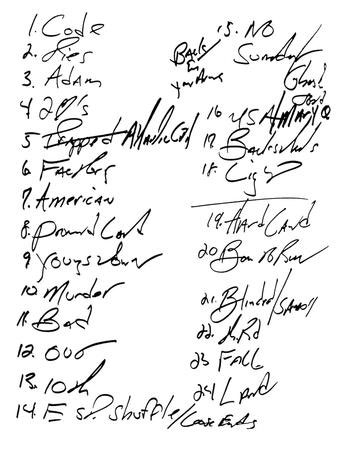 1. Code
2. Lies
3. Adam
4
5 Trapped Atlantic City
6 Factory
7. American
8. Promised Land
9 Youngstown
10 Murder
11. Bad
12. Out
13. 10th
14. E St. Shuffle/Loose Ends
Back
in
your Arms
15. No
Surrender
Ghost
Joad
16 USA Mary Q
17 Backstreets
18 Light
19. Hard Land
20 Born to Run
21. Blinded/
22. Rd
23 Fall
24 Land